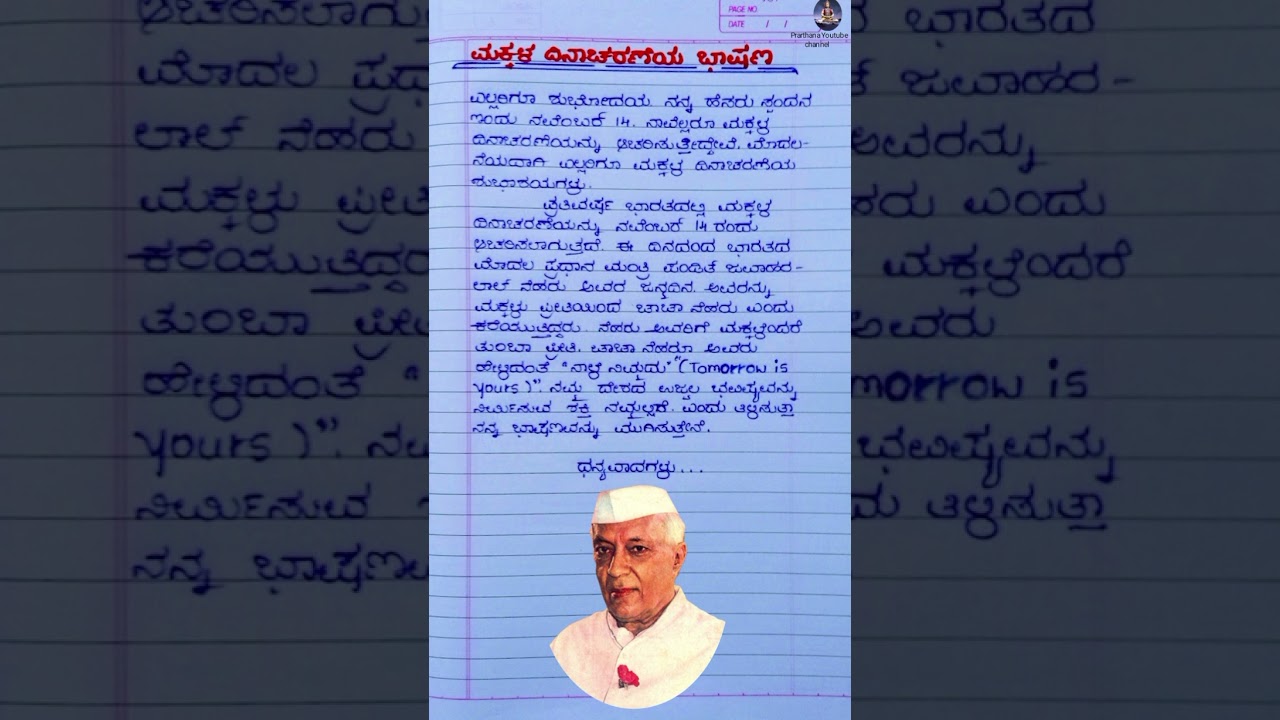 PAGE NO
DATE / /
Prarthana Youtube
channel
ಮಕ್ಕಳ ದಿನಾಚರಣೆಯ ಭಾಷಣ
ಎಲ್ಲರಿಗೂ ಶುಭೋದಯ ನನ್ನ ಹೆಸರು ಸ್ಪಂದನ
ಇಂದು ನವೆಂಬರ್ 14. ನಾವೆಲ್ಲರೂ ಮಕ್ಕಳ
ದಿನಾಚರಣೆಯನ್ನು ಆಚರಿಸುತ್ತಿದ್ದೇವೆ. ಮೊದಲ-
ನೆಯದಾಗಿ ಎಲ್ಲರಿಗೂ ಮಕ್ಕಳ ದಿನಾಚರಣೆಯ
ಶುಭಾಶಯಗಳು.
ಪ್ರತಿವರ್ಷ ಭಾರತದಲ್ಲಿ ಮಕ್ಕಳ
ದಿನಾಚರಣೆಯನ್ನು ನವೆಂಬರ್ 14 ರಂದು
ಆಚರಿಸಲಾಗುತ್ತದೆ. ಈ ದಿನದಂದ ಭಾರತದ
ಮೊದಲ ಪ್ರಧಾನ ಮಂತ್ರಿ ಪಂಡಿತ್ ಜವಾಹರ-
ಲಾಲ್ ನೆಹರು ಅವರ ಜನ್ಮದಿನ. ಅವರನ್ನು
ಮಕ್ಕಳು ಪ್ರೀತಿಯಿಂದ ಚಾಚಾ ನೆಹರು ಎಂದು
ಕರೆಯುತ್ತಿದ್ದರು. ನೆಹರು ಅವರಿಗೆ ಮಕ್ಕಳೆಂದರೆ
ತುಂಬಾ ಪ್ರೀತಿ. ಚಾಚಾ ನೆಹರೂ ಅವರು
ಹೇಳಿದಂತೆ "ನಾಳೆ ನಿಮ್ಮದು" "(Tomorrow is
yours)". ನಮ್ಮ ದೇಶದ ಉಜ್ವಲ ಭವಿಷ್ಯವನ್ನು
ನಿರ್ಮಿಸುವ ಶಕ್ತಿ ನಮ್ಮಲ್ಲಿದೆ. ಎಂದು ತಿಳಿಸುತ್ತಾ
ನನ್ನ ಭಾಷಣವನ್ನು ಮುಗಿಸುತ್ತೇನೆ.
ಧನ್ಯವಾದಗಳು...